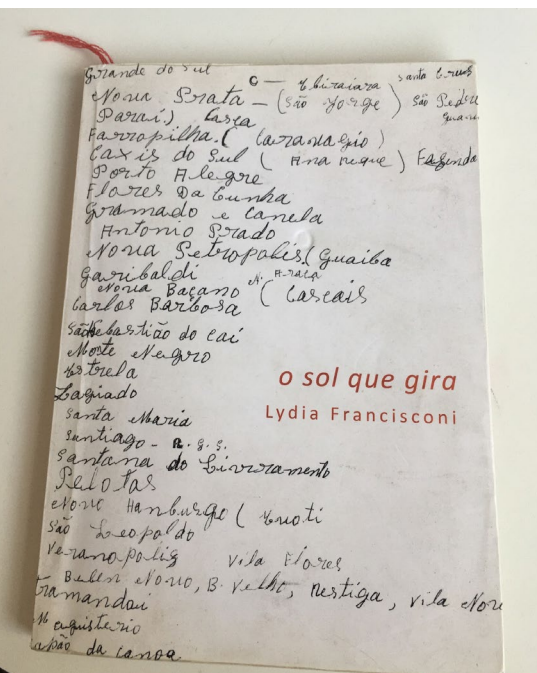 Grande do Sul
Ibiraiara Santa Cruz
Nova Prata - (São Jorge) São Pedro
Parai) Casca Guari
Farropilha. ( Caravagio)
Caxis do Sul ( Ana neque) Fazenda
Porto Alegre
Flores Da Cunha
Gramado e Canela
Antonio Prado
Nova Petropolis. (Guaiba
Garibaldi N. Araça
Nova Baçano ( Cascais
Carlos Barbosa
São Sebastião do Cai
Monte Negro
Estrela
o sol que gira
Lagiado
Lydia Francisconi
Santa Maria
Santiago - R. G. S.
Santana do Livramento
Pelotas
Novo Hanburgo ( Ivoti
São Leopoldo
Veranopolis Vila Flores
Belen Novo, B. Velho, Restiga, Vila Nova
tramandai
Magisterio
apão da canoa